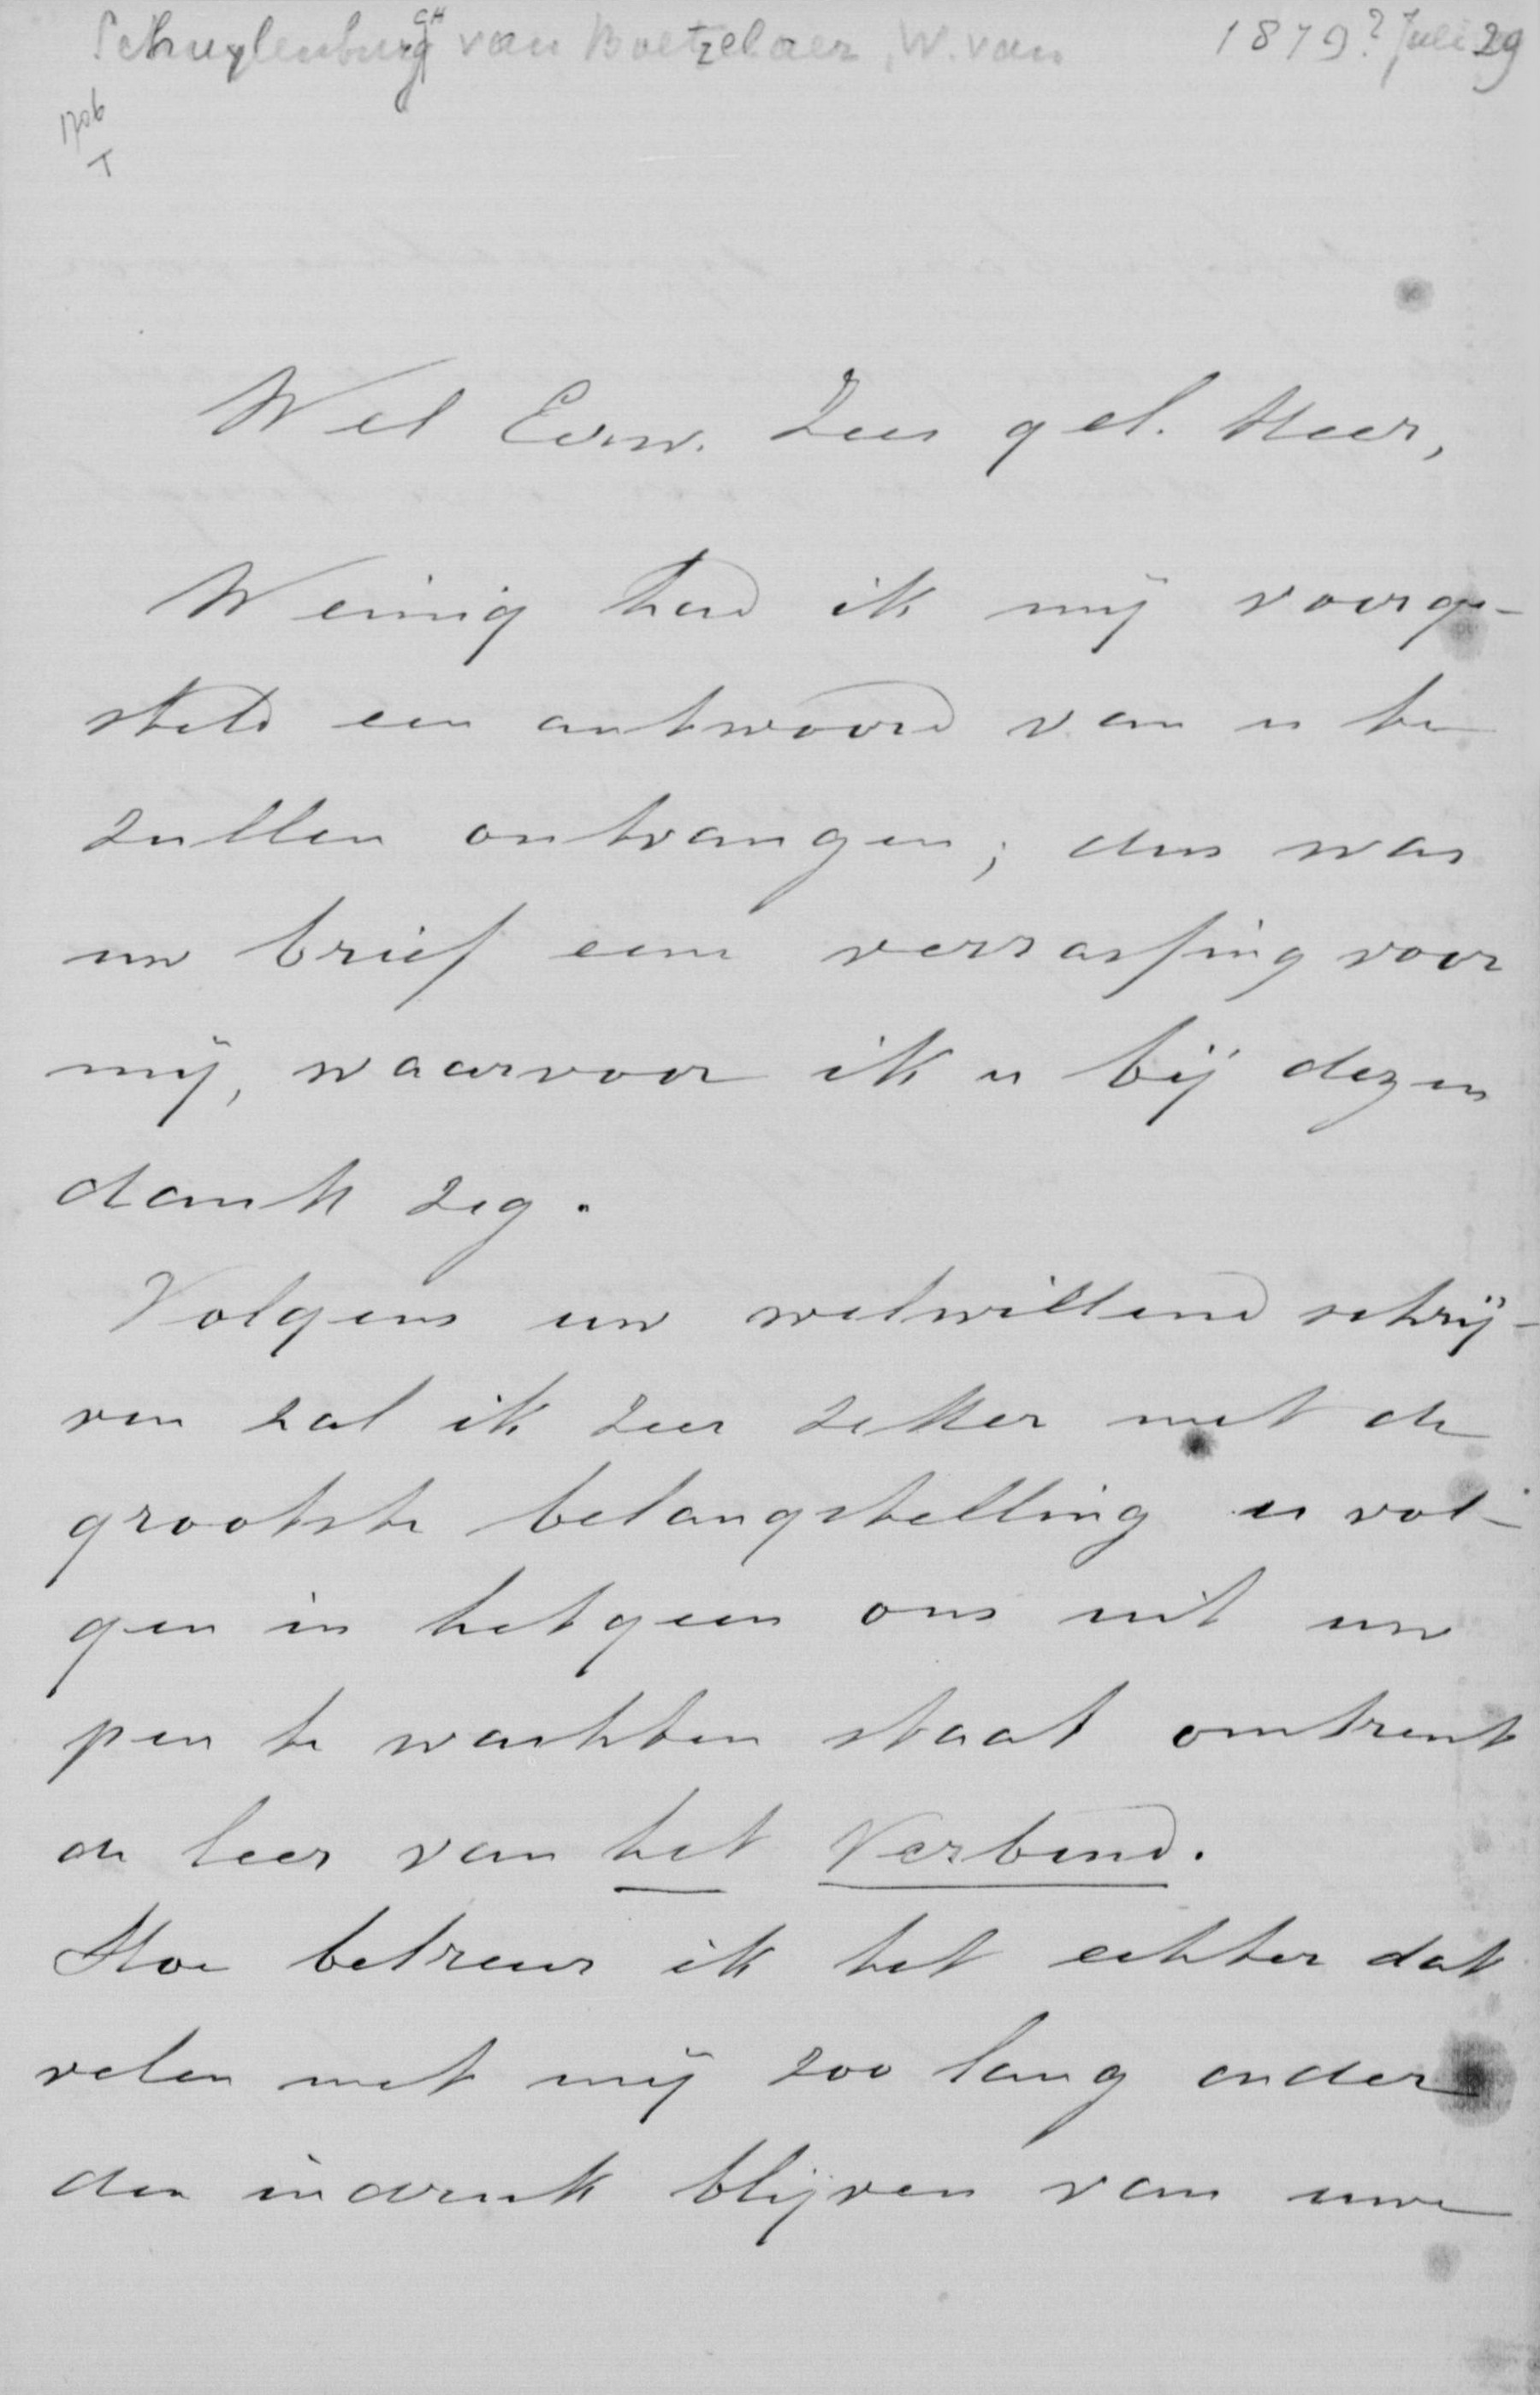 Schuylenburgh van Boetzelaer, W. van 1879? Juli 29
CH
1706
T
Wel Eerw. Zeer gel. Heer,
Weinig had ik mij voorge-
steld een antwoord van u te
zullen ontvangen; dus was
uw brief eene verrassing voor
mij, waarvoor ik u bij dezen
dank zeg.
Volgens uw welwillend schrij-
ven zal ik zeer zeker met de
grootste belangstelling u vol-
gen in hetgeen ons uit uw
pen te wachten staat omtrent
de leer van het Verbond.
Hoe betreur ik het echter dat
velen met mij zoo lang onder
den indruk blijven van uwe